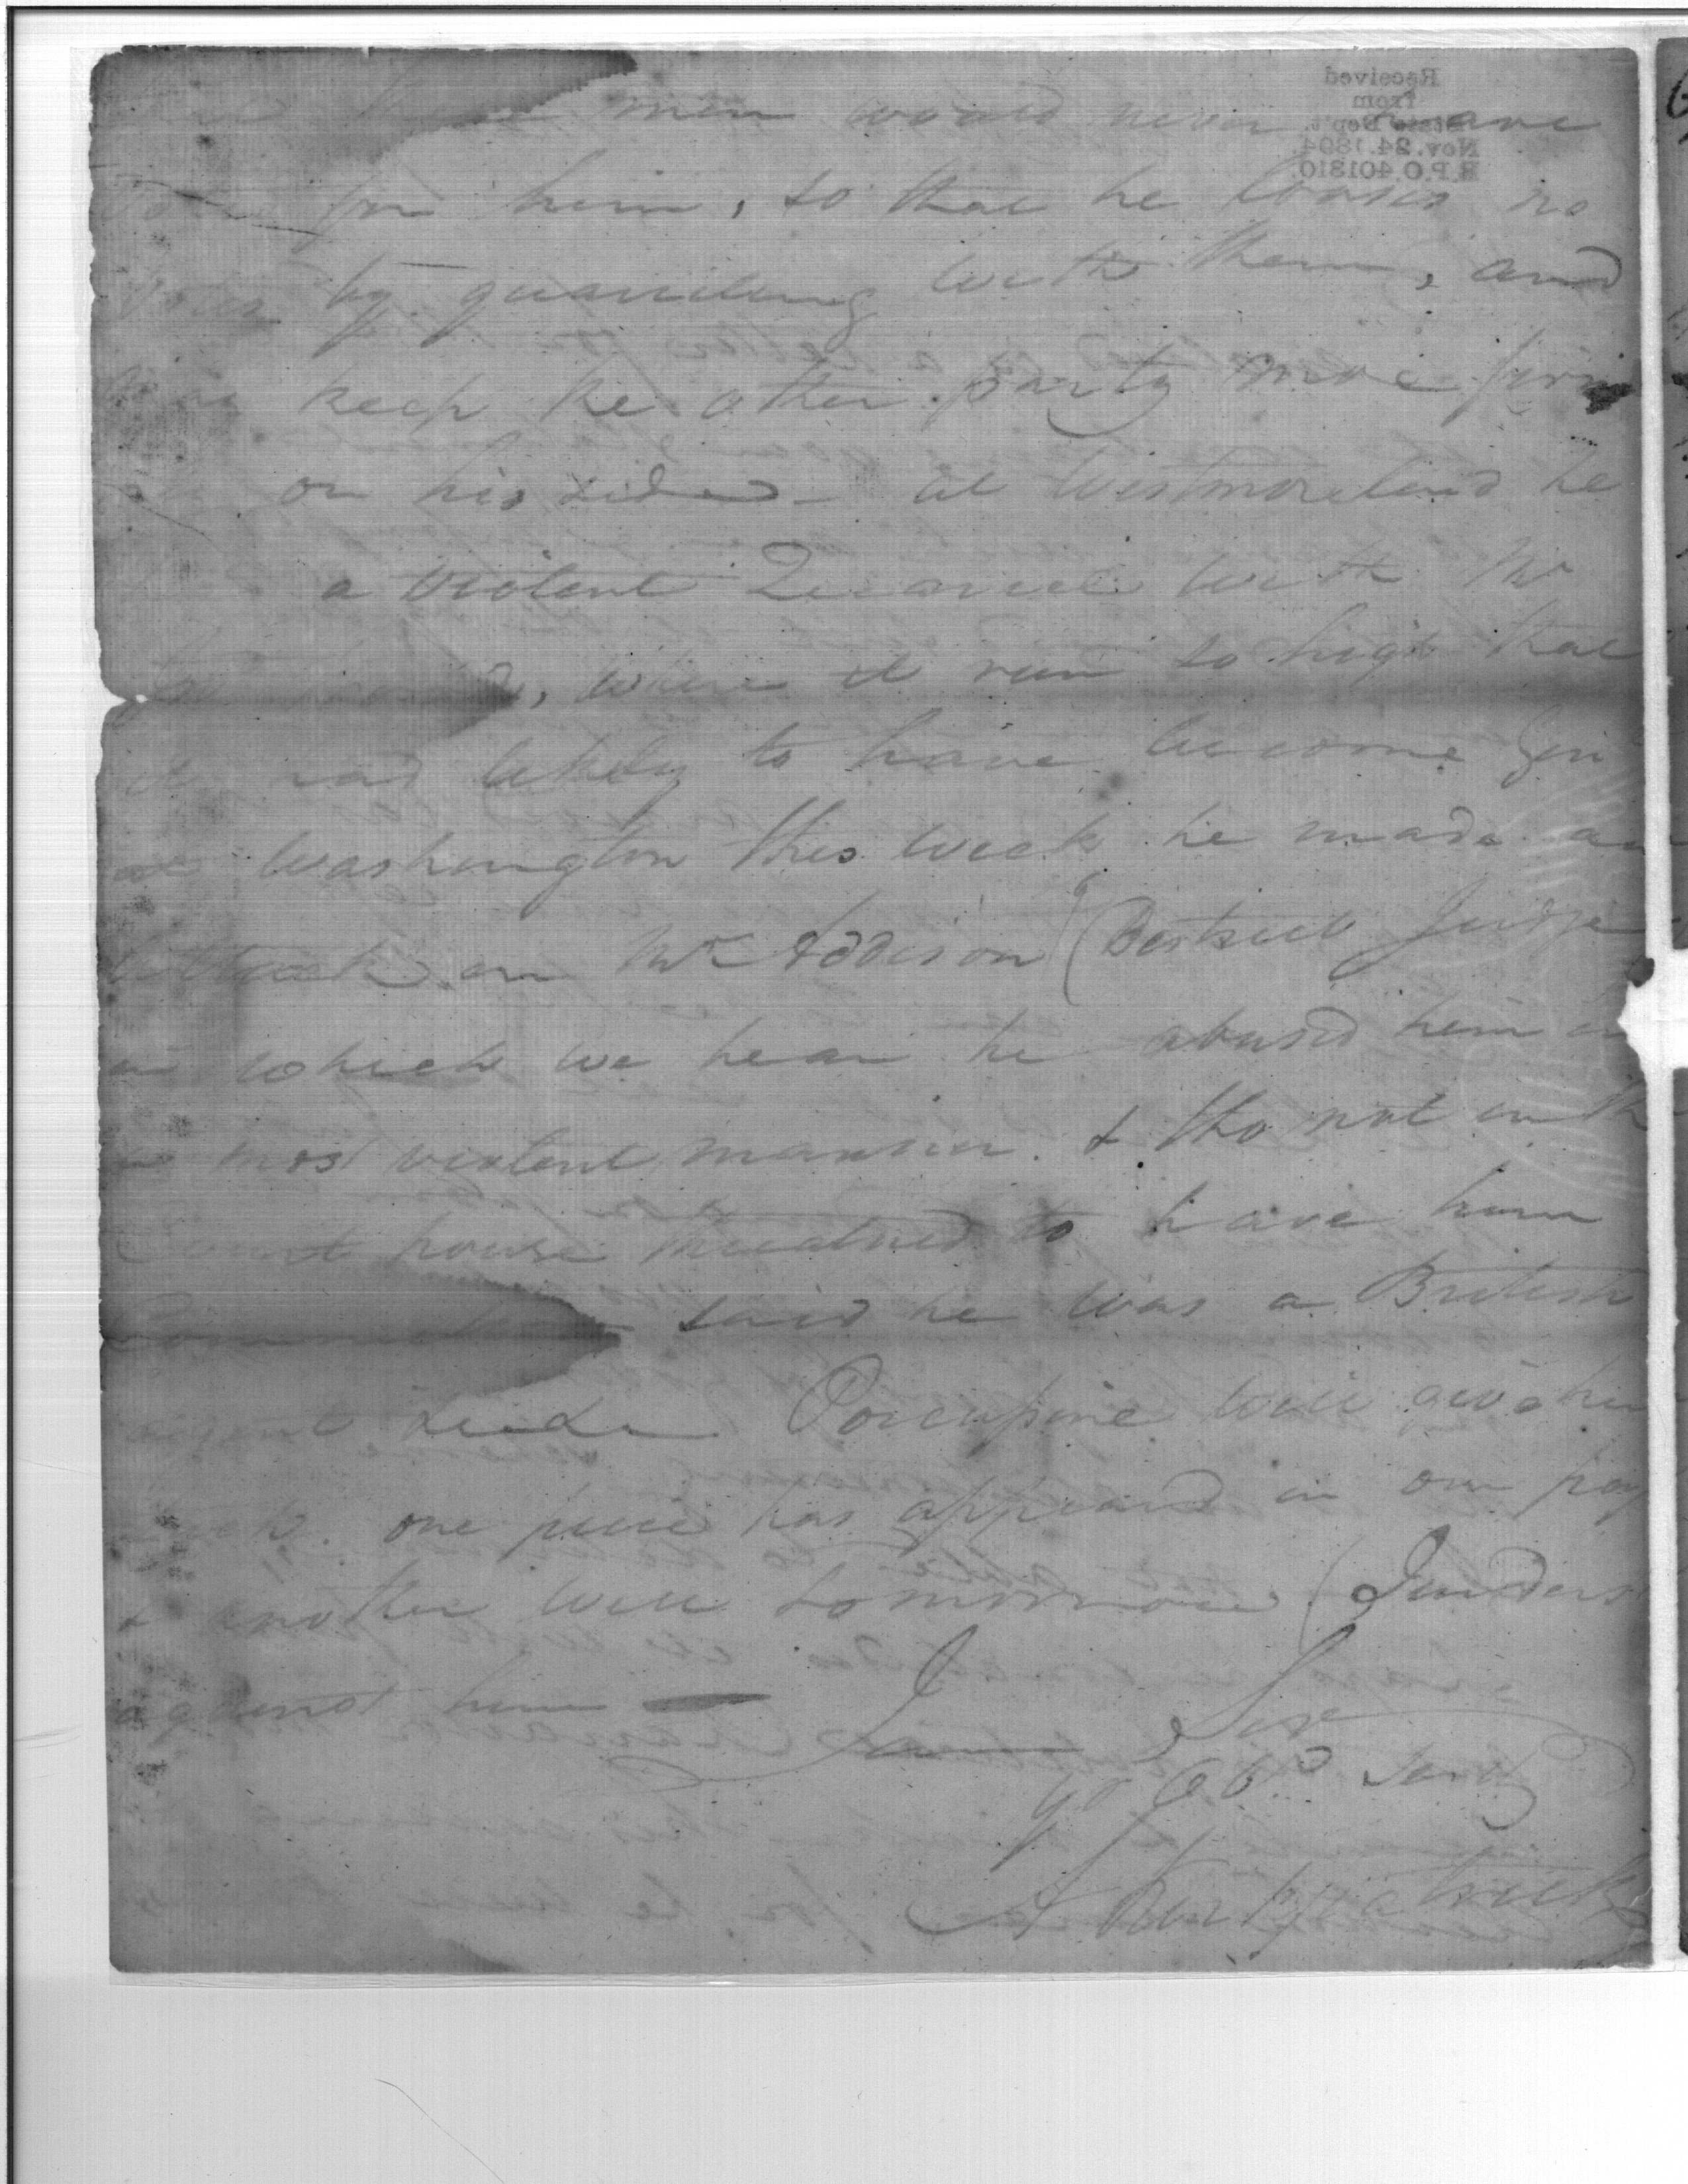 Received
from
State Dep't.
Nov. 24. 1894
R.P.O. 401310.
men would never have
for him, so that he looses no
votes by quarriling with them, and
keep the other party more firm
on his side - at Westmoreland he
a violent Quarriel with Mr
, where it run so high that
it was likely to have become
at Washington this week he made an
attack on Mr Addison (District Judge
in which we hear he abused him in
a most violent manner. & tho not in th
Court house threatned to have him
said he was a British
agent Porcupine will give him
one piece has appeard in our pap
& another will tomorrow
against him
I am Sir
yr Obt Servt
Kirkpatrick